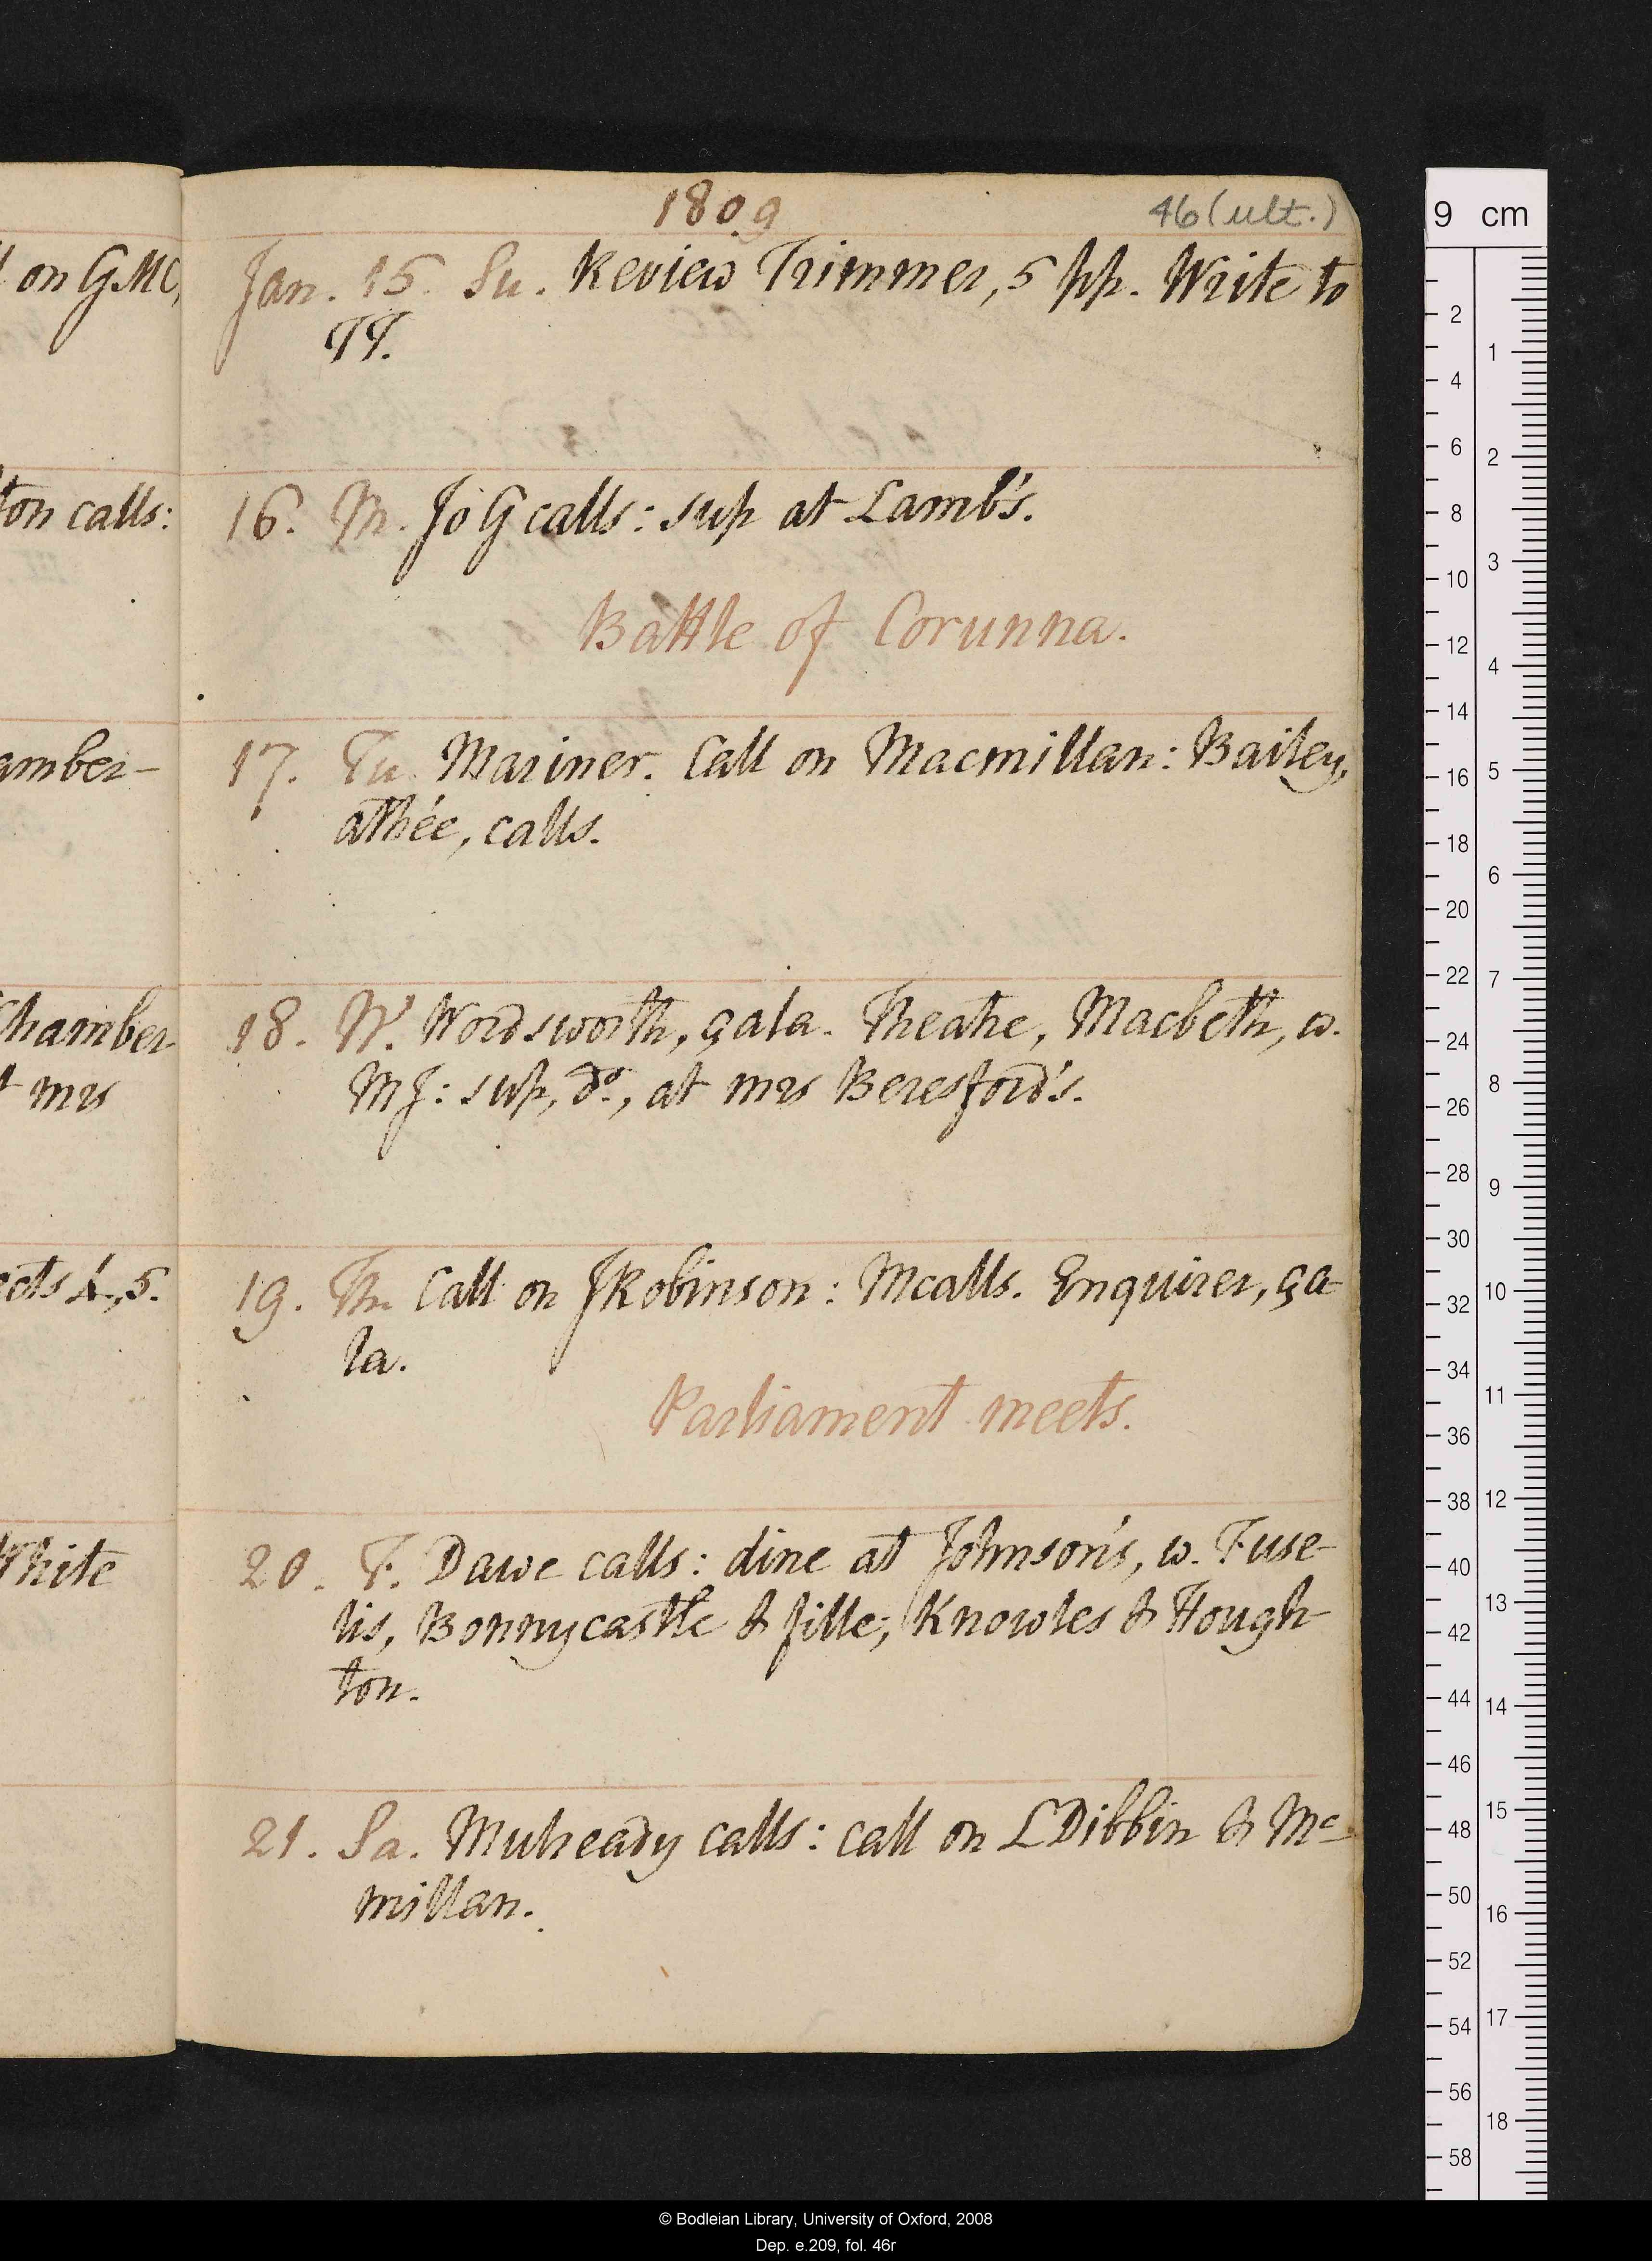 on GMC,
ton calls:
amber-
Chamber
mrs
ects 4, 5.
White
1809
46 (ult.)
Jan. 15. Su. Review Trimmer, 5 pp. Write to
TT.
16. M. Jo G calls: sup at Lamb's.
Battle of Corunna.
17. Tu. Mariner. Call on Macmillan: Bailey,
athée, calls.
18. W. Wordsworth, çala. Theatre, Macbeth, w.
MJ: sup, do, at mrs Beresford's.
19. Th. Call on JRobinson: M calls. Enquirer, ça-
la.
Parliament meets.
20. F. Dawe calls: dine at Johnson's, w. Fuse-
lis, Bonnycastle & fille, Knowles & Hough-
ton.
21. Sa. Mulready calls: call on L Dibbin & Mc-
millan.
9 cm
2
4
6
8
10
12
14
16
18
20
22
24
26
28
30
32
34
36
38
40
42
44
46
48
50
52
54
56
58
1
2
3
4
5
6
7
8
9
10
11
12
13
14
15
16
17
18
© Bodleian Library, University of Oxford, 2008
Dep. e.209, fol. 46r